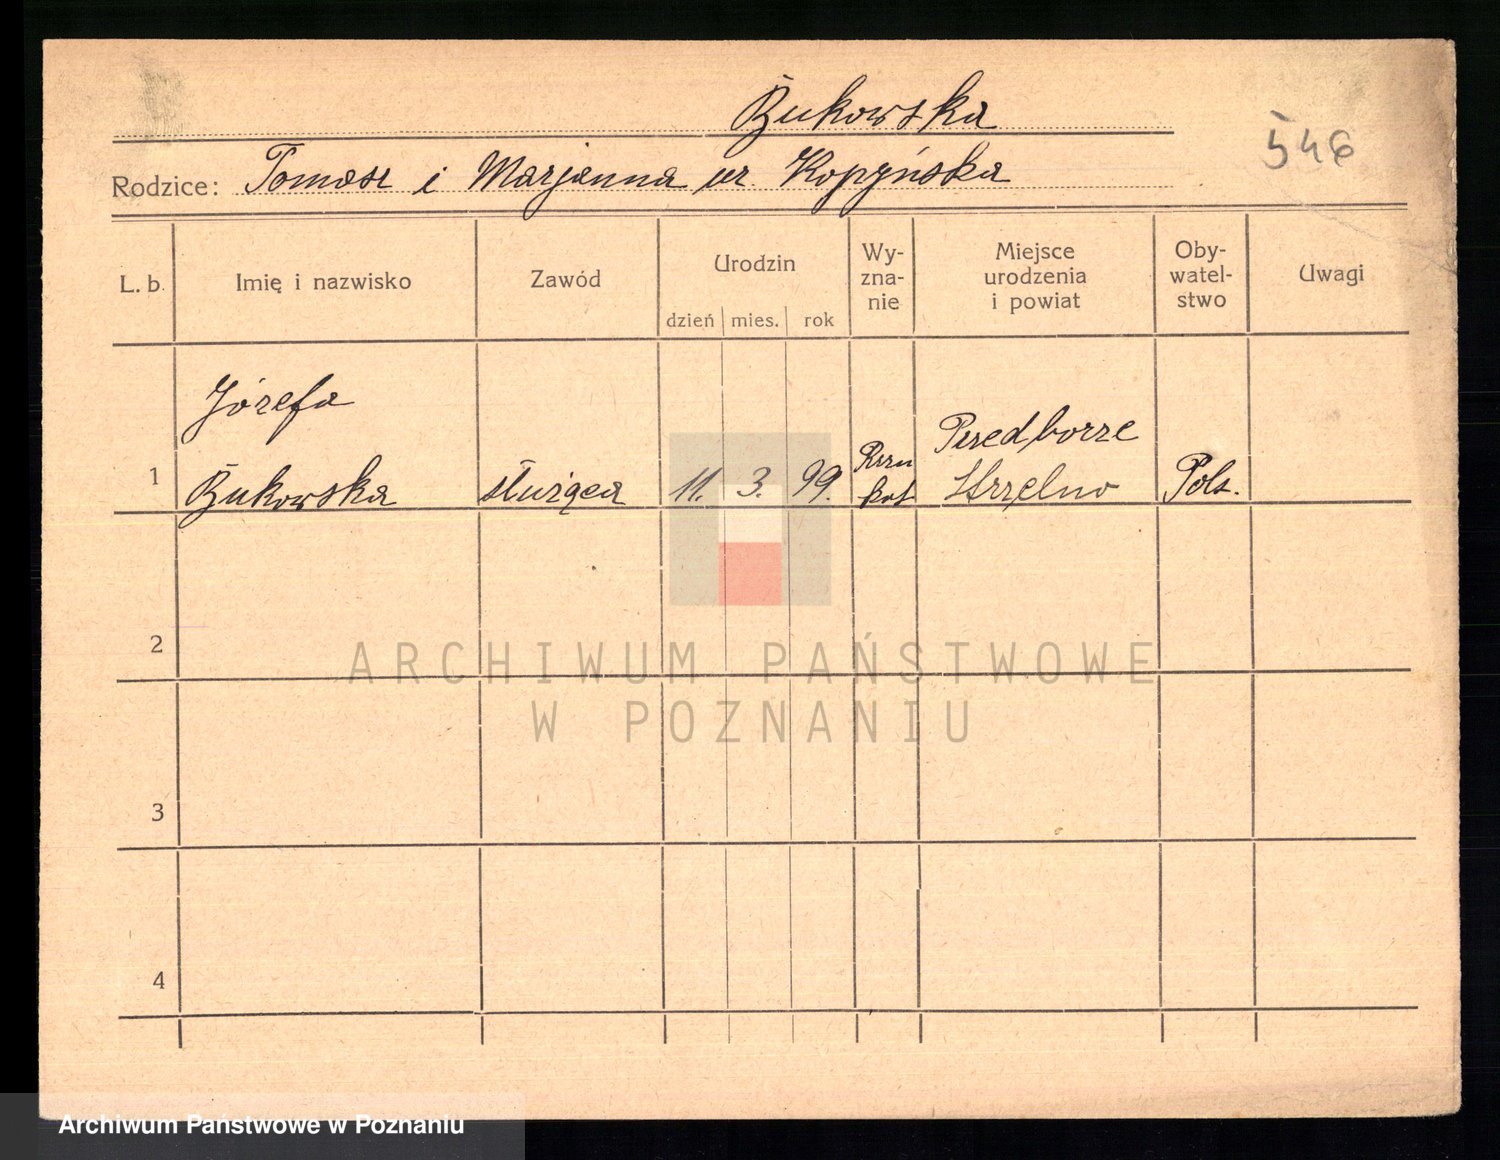 Żukowska
546
Rodzice: Tomasz i Marjanna ur. Kopyńska
L. b.
Imię i nazwisko
Zawód
Urodzin
dzień mies. rok
Wy-
zna-
nie
Miejsce
urodzenia
i powiat
Oby-
watel-
stwo
Uwagi
Józefa
Żukowska
1
służąca
11. 3. 99.
Rzym
kat
Przedborze
Strzelno
Pols.
2
3
4
ARCHIWUM PAŃSTWOWE
W POZNANIU
Archiwum Państwowe w Poznaniu